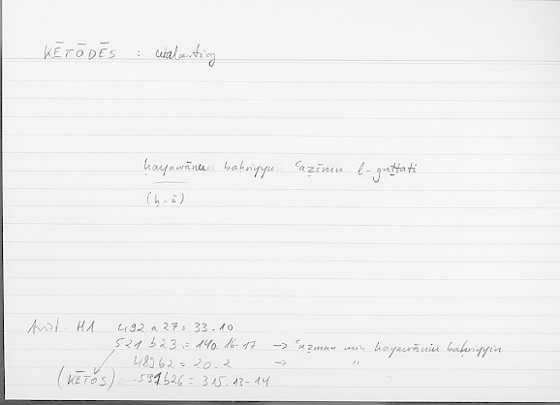 KĒTŌDĒS : walartig
ḥayawānu baḥriyyu ʿaẓīmu l-ǧuṯṯati
(ḥ-ī)
Arist. H1 492 a 27 = 33.10
521 b23 = 140.16-17 → ʿaẓman min ḥayawānin baḥriyyin
489b2 = 20.2 → "
(KĒTOS) -591b26 = 315.13-14